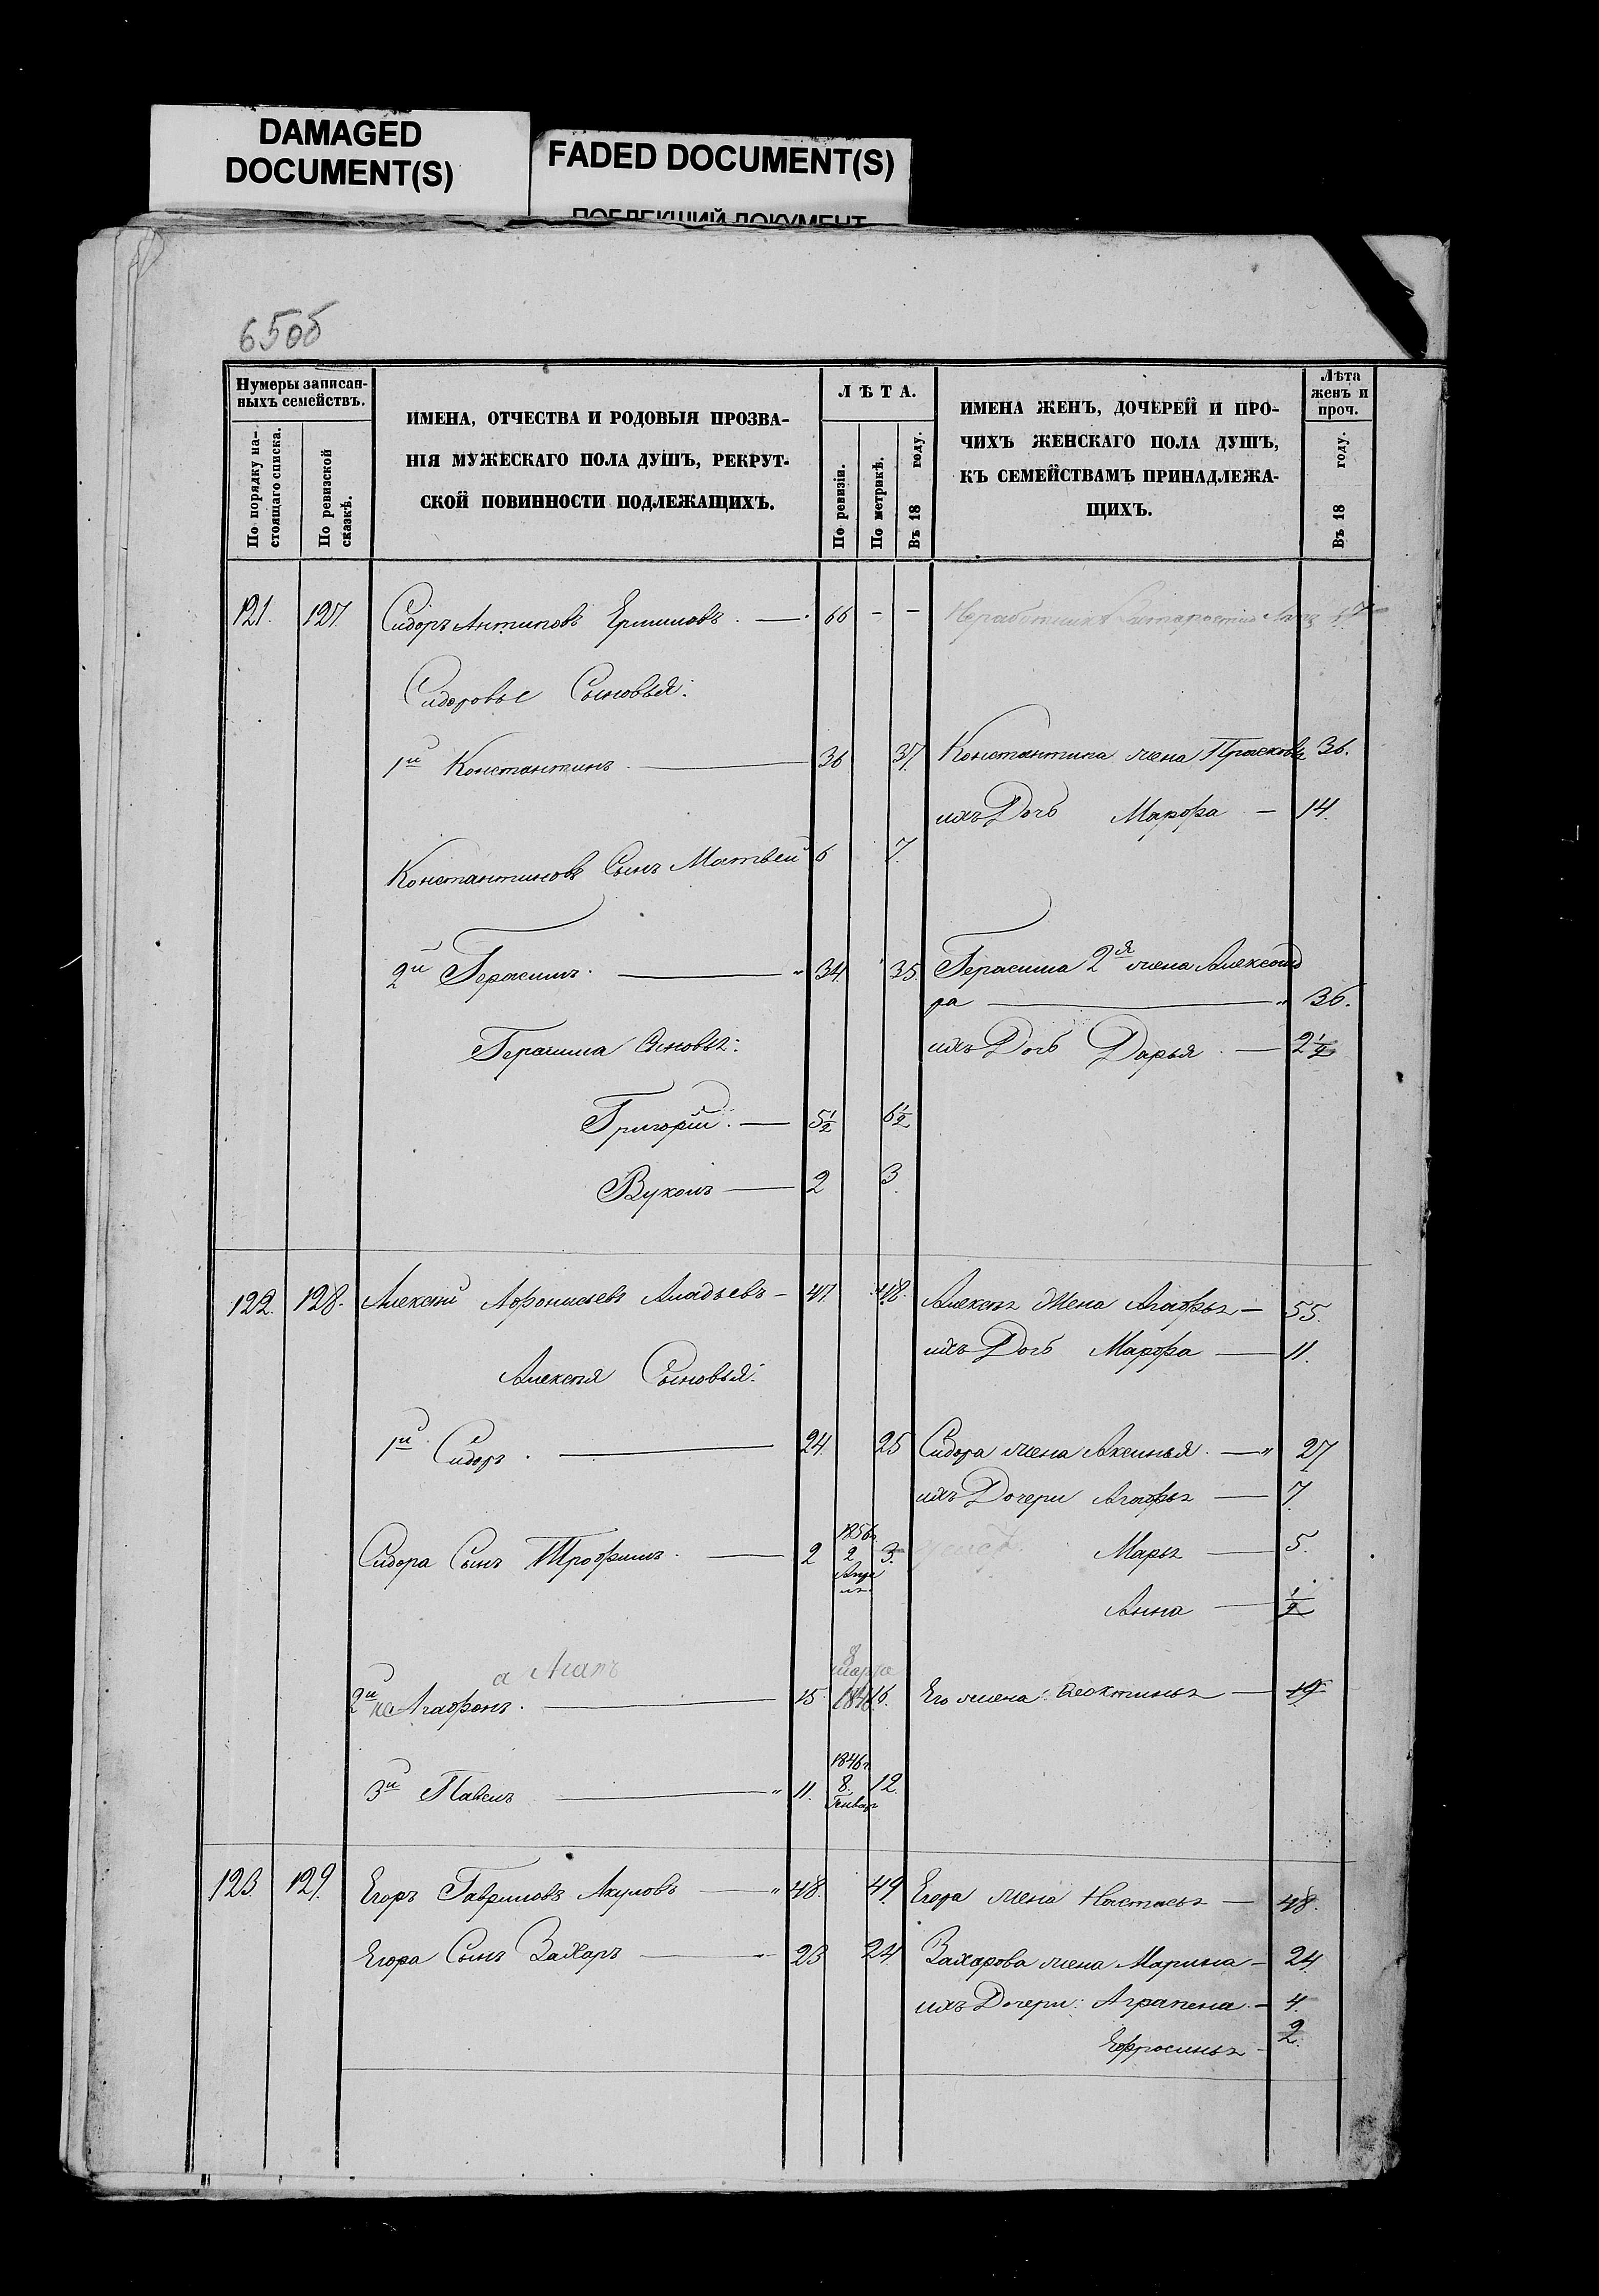 DAMAGED
DOCUMENT(S)
FADED DOCUMENT(S)
ПОБЛЕКШИЙ ДОКУМЕНТ
65об
Нумеры записан-
ныхъ семействъ.
По порядку на-
стоящаго списка.
По ревизской
сказкѣ.
ИМЕНА, ОТЧЕСТВА И РОДОВЫЯ ПРОЗВА-
НІЯ МУЖЕСКАГО ПОЛА ДУШЪ, РЕКРУТ-
СКОЙ ПОВИННОСТИ ПОДЛЕЖАЩИХЪ.
ЛѢТА.
По ревизіи.
По метрикѣ.
Въ 18 году.
ИМЕНА ЖЕНЪ, ДОЧЕРЕЙ И ПРО-
ЧИХЪ ЖЕНСКАГО ПОЛА ДУШЪ,
КЪ СЕМЕЙСТВАМЪ ПРИНАДЛЕЖА-
ЩИХЪ.
Лѣта
женъ и
проч.
Въ 18 году.
121. 127. Сидоръ Антиповъ Ермиловъ. — 66 - -
Сидоровы Сыновья:
1й Константинъ — 36 37. Константина жена Прасковья 36.
ихъ Дочь Марфа — 14.
Константиновъ Сынъ Матвей 6 7.
2й Герасимъ. — 34. 35 Герасима 2я жена Александ
ра — 36.
Герасима Сыновья: ихъ Дочь Дарья. — 2 1/2
Григорій. — 5 1/2 6 1/2
Вуколъ — 2 3.
122. 128. Алексей Афонасьевъ Аладьевъ — 47. 48. Алексея Жена Агафья — 55.
ихъ Дочь Марфа — 11.
Алексея Сыновья:
1й Сидоръ. — 24. 25 Сидора жена Аксинья. — 27
ихъ Дочери Агафья — 7.
Сидора Сынъ Трофимъ. — 2 1856г. 2 Апреля 3. Марья — 5.
Анна — 1/2
а Агапъ
2й не Агафонъ. — 15. 8 марта 184 16. Его жена: Феоктинья — 19
3й Павелъ — 11. 1846г. 8. Генвар 12.
123. 129. Егоръ Гавриловъ Акуловъ — 48. 49. Егора жена Настасья — 48.
Егора Сынъ Захаръ — 23 24. Захарова жена Марина — 24.
ихъ Дочери: Аграпена. — 4.
Ефросинья — 2.